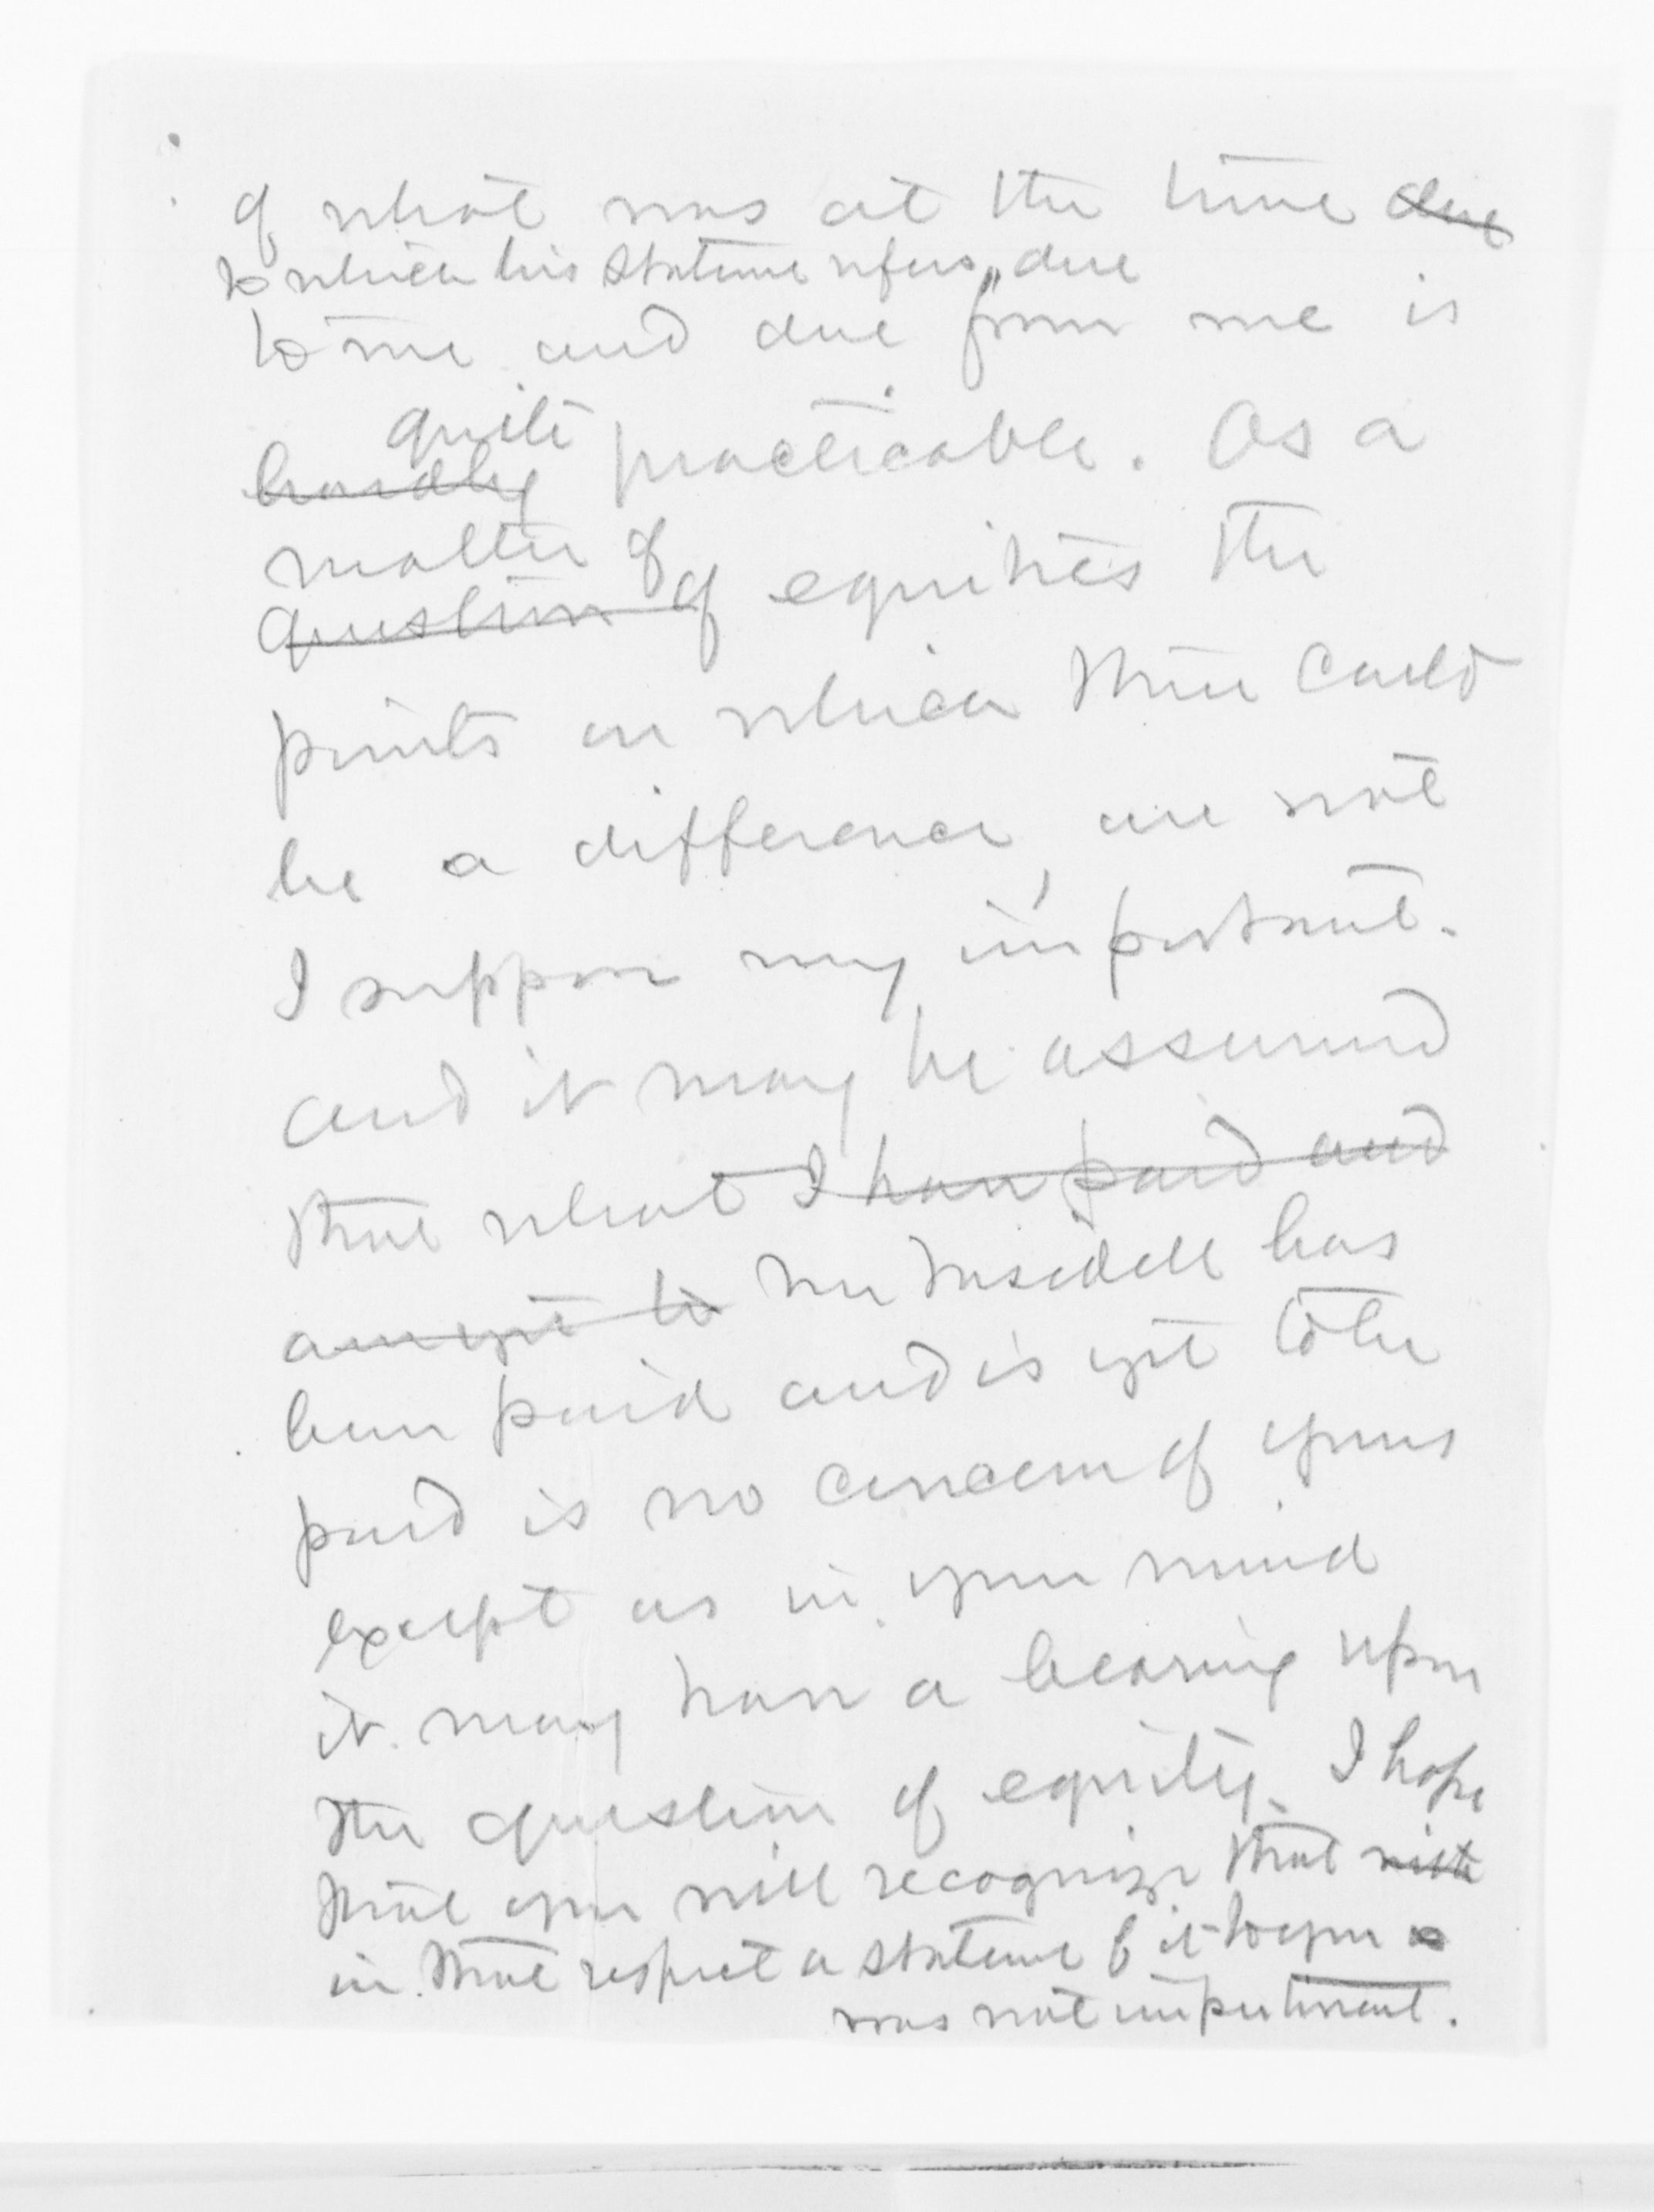 of what was at the time due
to which his statement refers, due
to me and due from me is
quite
hardly practicable. As a
matter of
question of equities the
points on which there could
be a difference, are not
I suppose very important.
and it may be assumed
that what I have paid and
am yet to Mr Trisdell has
been paid and is yet to be
paid is no concern of yours
except as in your mind
it may have a bearing upon
the question of equity. I hope
that you will recognize that with
in that respect a statement of it to you
was not impertinent.